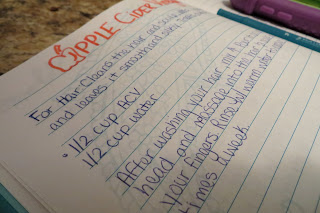 APPLE CIDER
For Hair: Cleans the hair and scalp
and leaves it smooth and
• 1/2 cup ACV
1/2 cup water
After washing your hair,
head and massage into the hair
your fingers. Rinse w/ warm water
times A week.